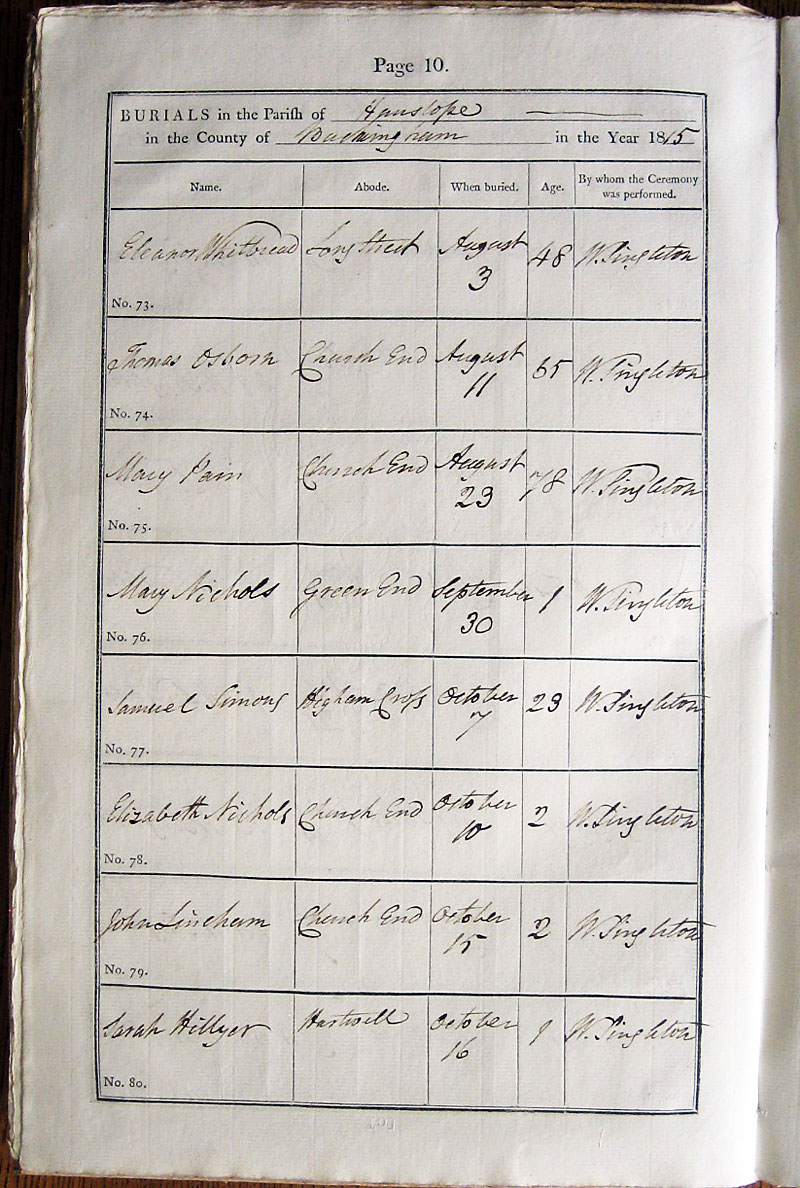 Page 10.
BURIALS in the Parish of Hanslope
in the County of Buckingham in the Year 1815
Name. Abode. When buried. Age. By whom the Ceremony was performed.
Eleanor Whitbread Long Street August 3 48 W. Singleton
No. 73.
Thomas Osborn Church End August 11 65 W. Singleton
No. 74.
Mary Pain Church End August 23 78 W. Singleton
No. 75.
Mary Nichols Green End September 30 1 W. Singleton
No. 76.
Samuel Simons Higham Cross October 7 23 W. Singleton
No. 77.
Elizabeth Nichols Church End October 10 2 W. Singleton
No. 78.
John Lineham Church End October 15 2 W. Singleton
No. 79.
Sarah Hillyer Hartwell October 16 1 W. Singleton
No. 80.